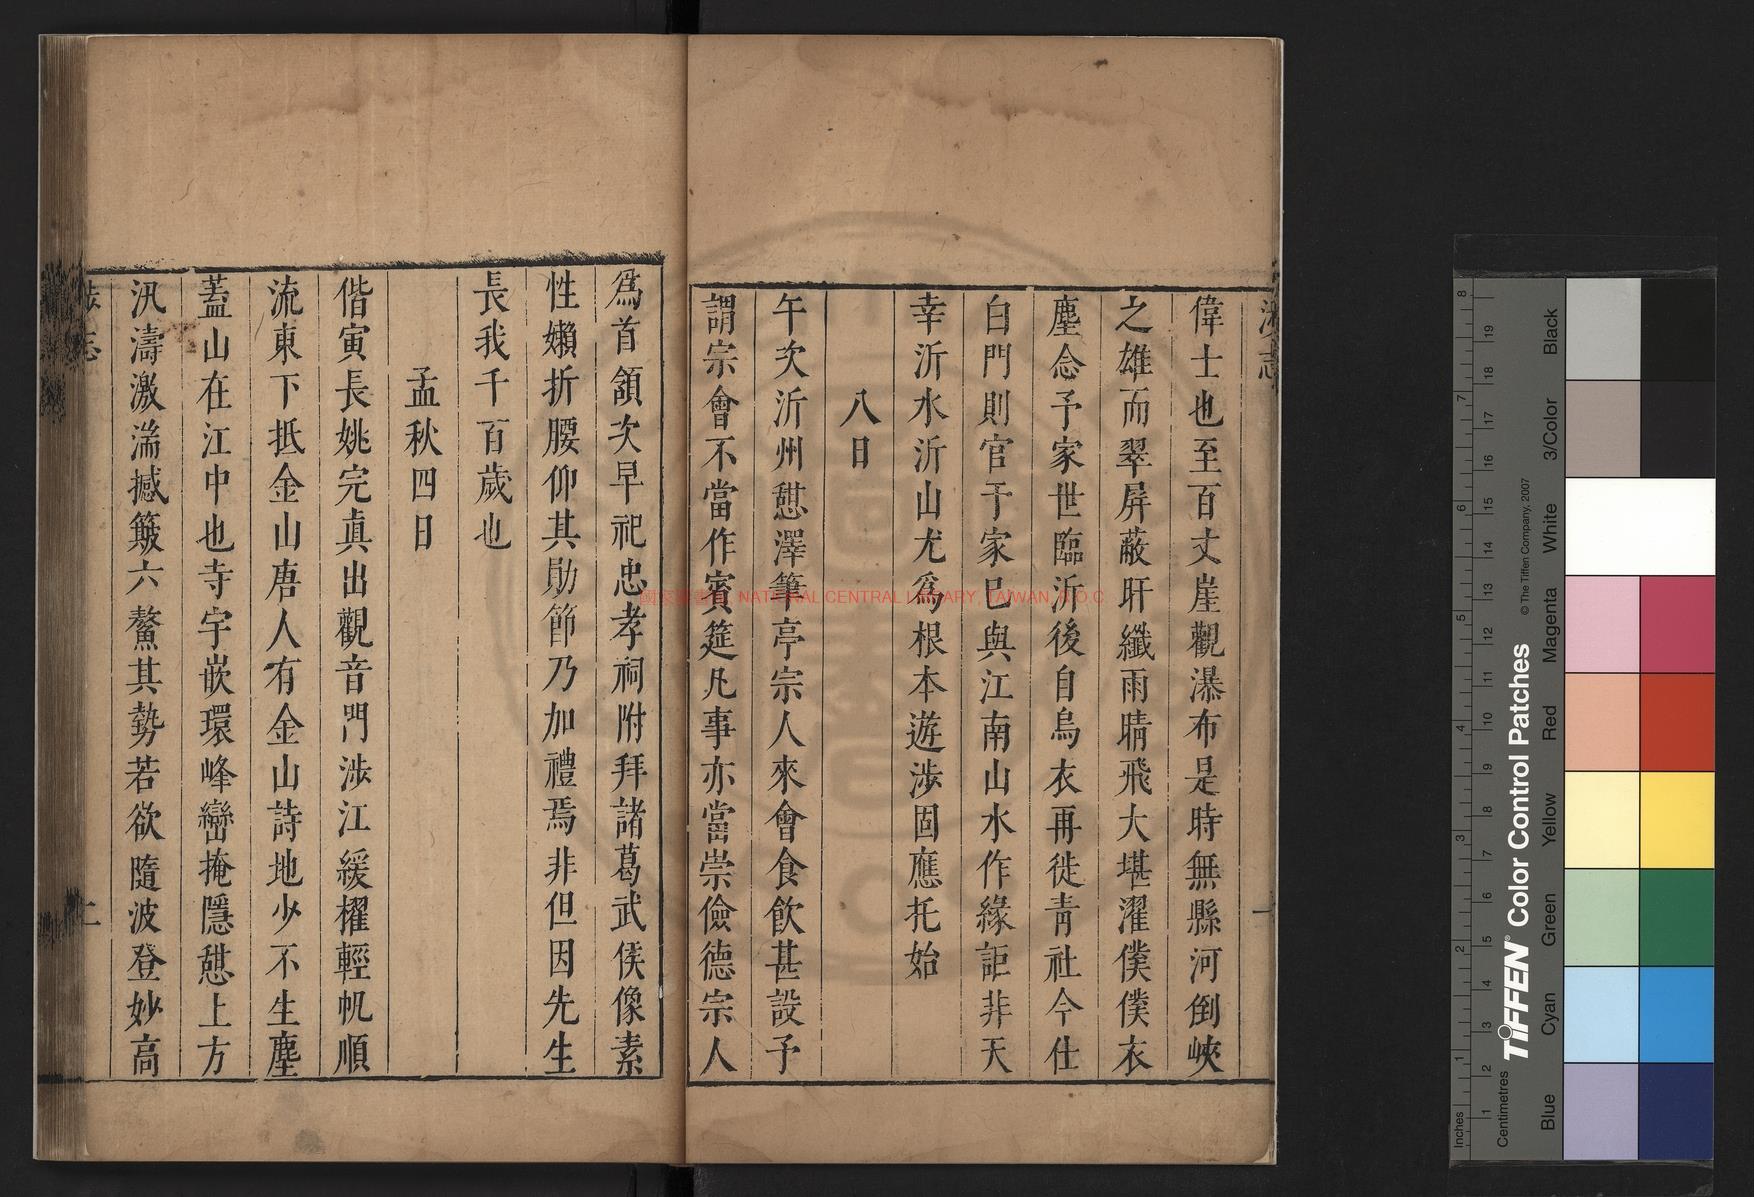 偉士也至百丈崖觀瀑布是時無縣河倒峽
之雄而翠屏蔽旰纖雨晴飛大堪濯僕僕衣
塵念予家世臨沂後自烏衣再徙青社今仕
白門則官于家巳與江南山水作緣詎非天
幸沂水沂山尤爲根本遊涉固應托始
八日
午次沂州憇澤筆亭宗人來會食飲甚設予
謂宗會不當作賓筵凡事亦當崇儉德宗人
爲首頷次早祀忠孝祠附拜諸葛武侯像素
性嬾折腰仰其勛節乃加禮焉非但因先生
長我千百歲也
孟秋四日
偕寅長姚完眞出觀音門涉江緩櫂輕帆順
流東下抵金山唐人有金山詩地少不生塵
蓋山在江中也寺宇嵌環峰巒掩隱憇上方
汎濤激湍撼簸六鰲其勢若欲隨波登妙高
國家圖書館, NATIONAL CENTRAL LIBRARY, TAIWAN, R.O.C
Inches
Centimetres
TIFFEN® Color Control Patches
© The Tiffen Company, 2007
Blue
Cyan
Green
Yellow
Red
Magenta
White
3/Color
Black